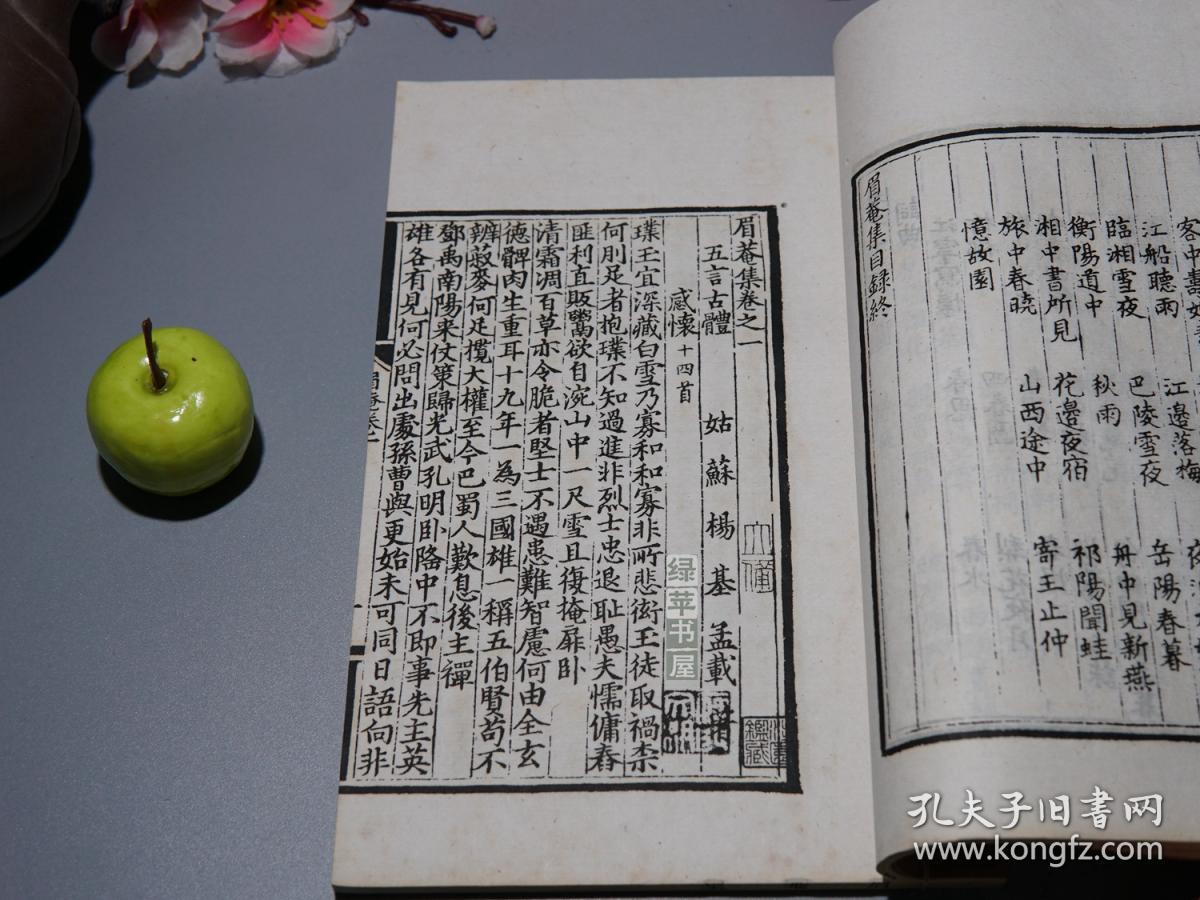 江船聽雨 江邊落梅 岳陽春暮
臨湘雪夜 巴陵雪夜 舟中見新燕
衡陽道中 秋雨 祁陽聞蛙
相中書所見 花邊夜宿 寄王止仲
旅中春曉 山西途中
憶故園
眉菴集目録終
眉菴集卷之一
五言古體 姑蘇楊基孟載
感懷十四首
璞玉宜深藏白雪乃寡和和寡非所悲衒玉徒取禍柰
何刖足者抱璞不知過進非烈士忠退耻愚夫懦傭舂
匪利直販鬻欲自涴山中一尺雪且復掩扉卧
清霜凋百草亦令脆者堅士不遇患難智慮何由全玄
德髀肉生重耳十九年一為三國雄一稱五伯賢苟不
辨菽麥何足攬大權至今巴蜀人歎息後主禪
鄧禹南陽来仗策歸光武孔明卧隆中不即事先主英
雄各有見何必問出處孫曹與更始未可同日語向非
绿苹书屋
孔夫子旧书网
www.kongfz.com